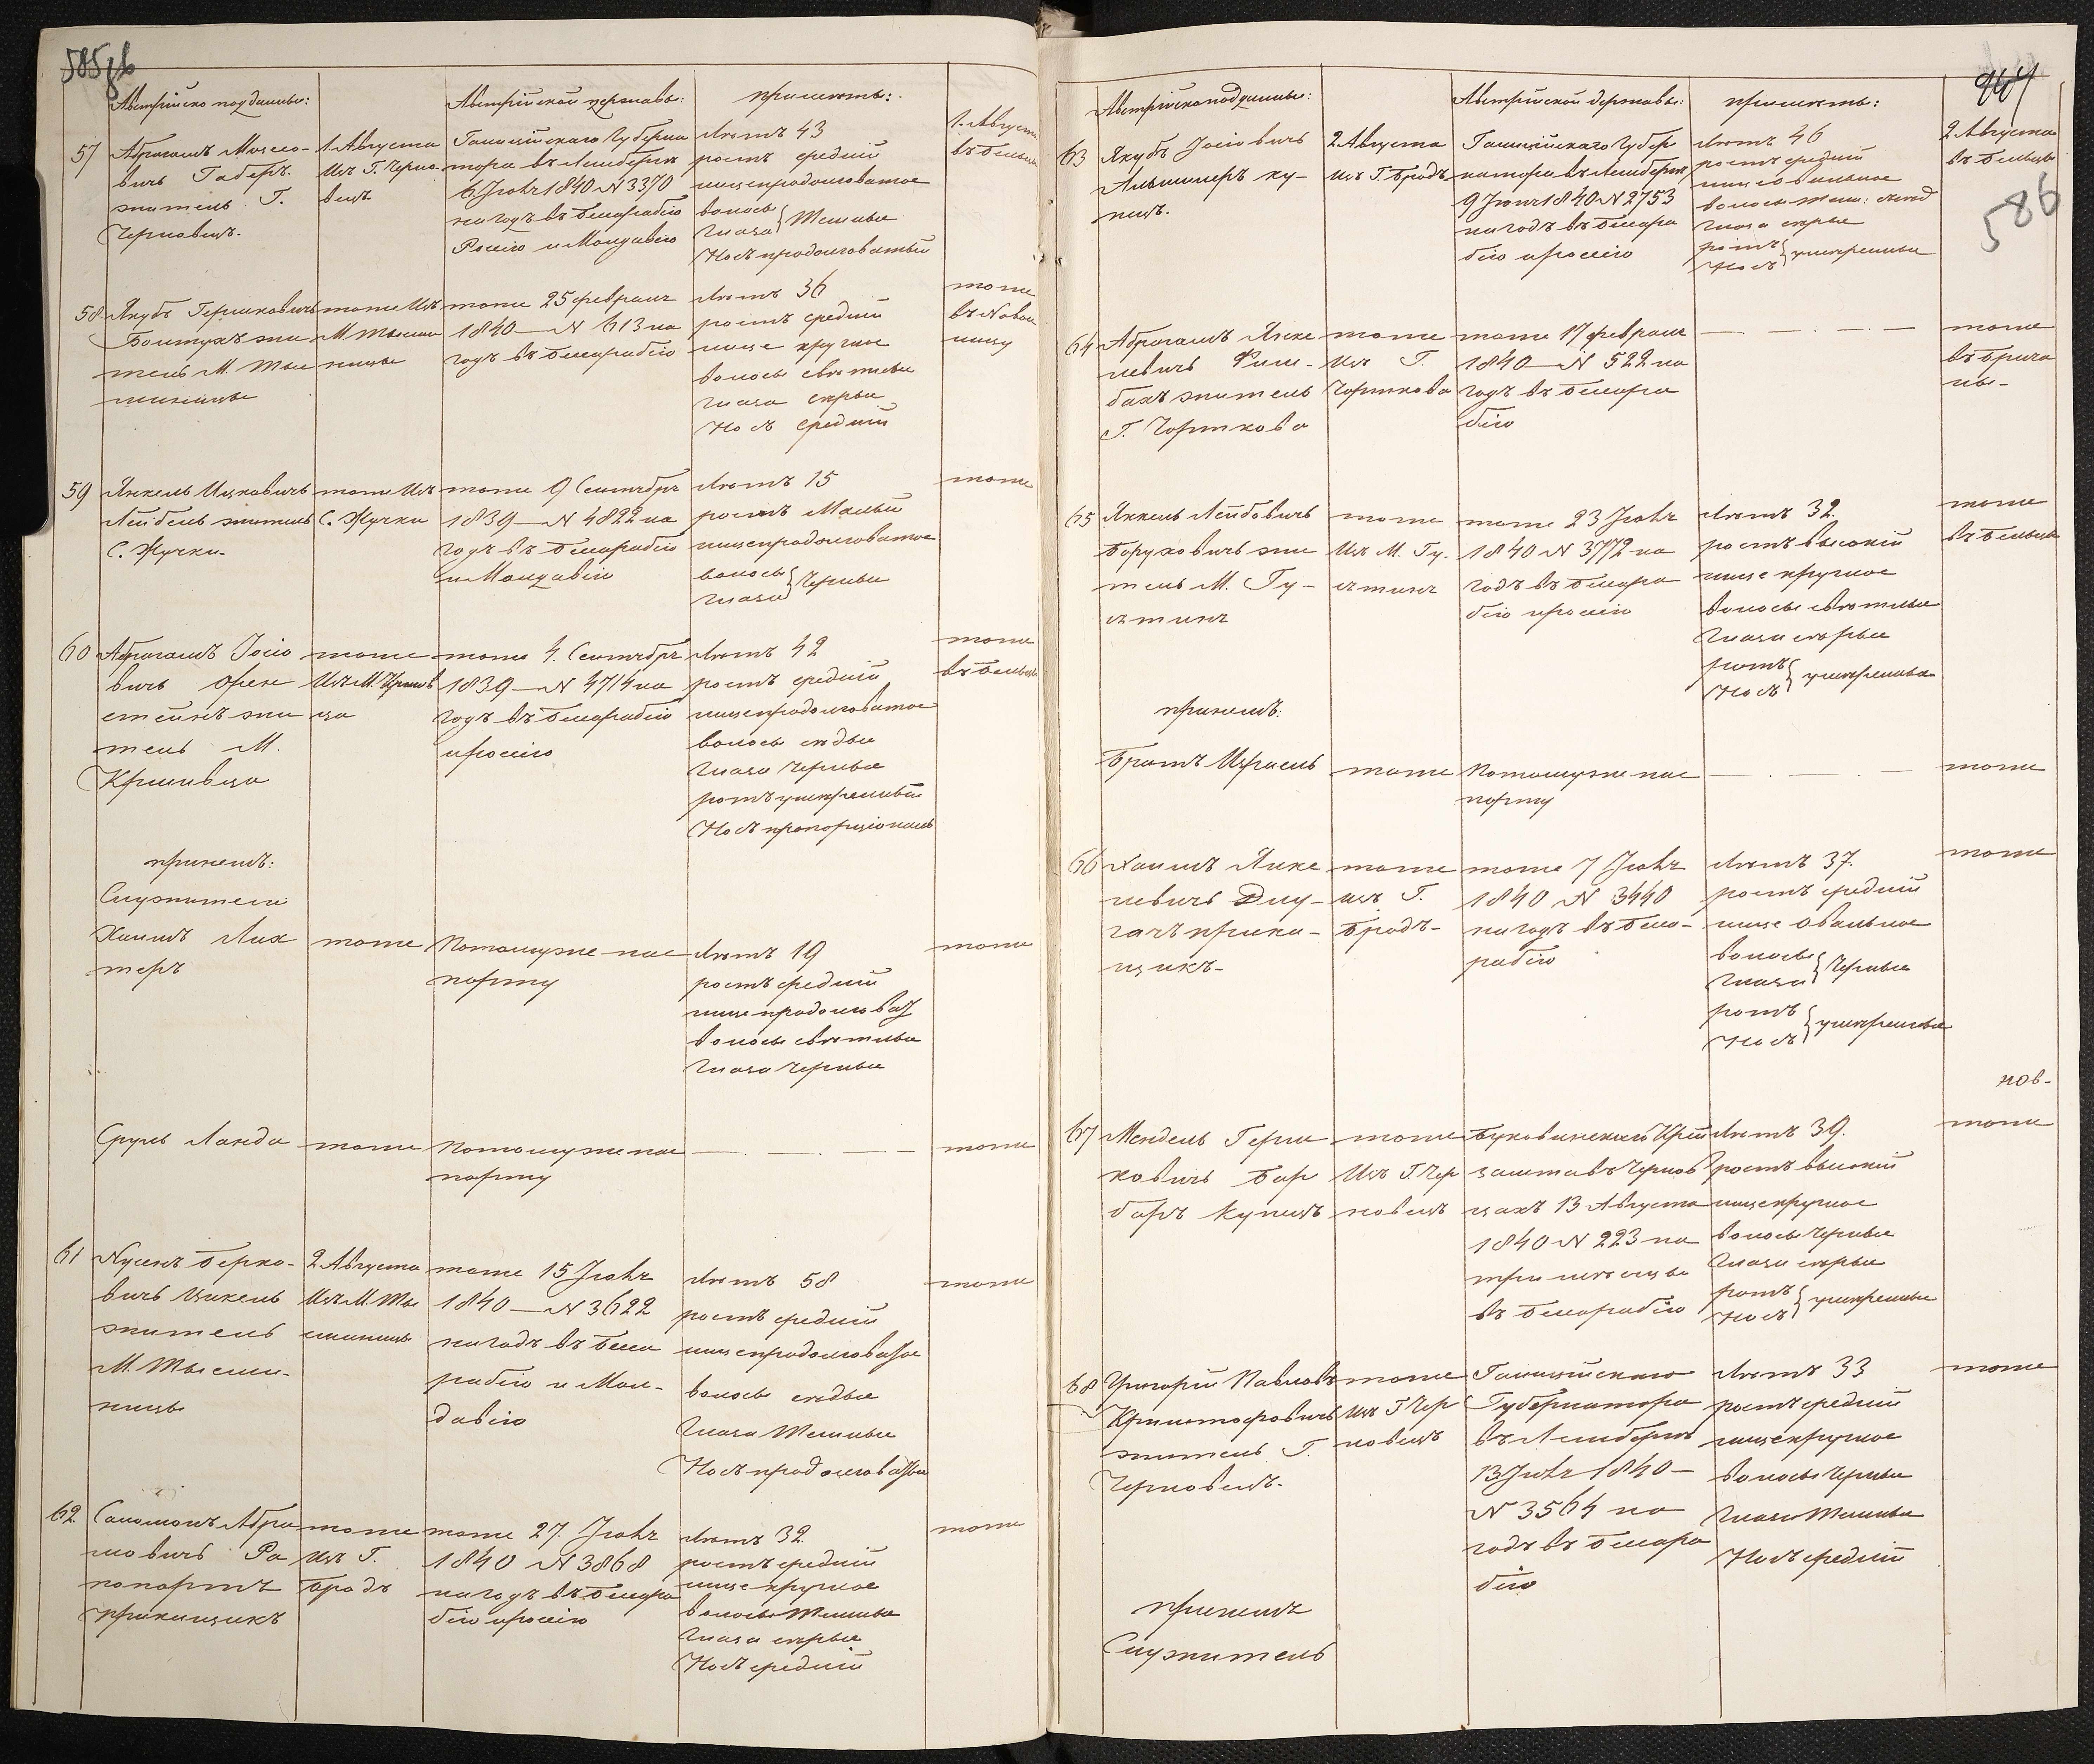 585 об
Австрійско подданные:
Австрійской державы:
приметы:
57
Абрагамъ Мозесо-
вичъ Габеръ
житель Г.
Черновецъ.
1 Августа
Изъ Г. Черно-
вецъ
Галиційскаго Губерна
тора въ Лембергѣ
6 Іюля 1840 N 3370
на годъ въ Бесарабію
Россію и Молдавію
Лѣтъ 43
ростъ средній
лице продолговатое
волосы
глаза } Темные
Носъ продолговатый
1. Августа
въ Бельцы
58
Якубъ Гершковичъ
жи
тель М. Тыс
тоже Изъ
М. Тысми
ницы
тоже 25 февраля
1840 — N 613 на
годъ въ Бесарабію
Лѣтъ 36
ростъ средній
лице круглое
волосы свѣтлые
глаза серые
Носъ средній
тоже
59
Янкель Ицковичъ
Лейбель житель
С. Жучки
тоже Изъ
С. Жучки
тоже 9 Сентября
1839 — N 4822 на
годъ въ Бесарабію
и Молдавію
Лѣтъ 15
ростъ Малый
лице продолговатое
волосы
глаза } Черные
тоже
60
Абрагамъ Іосіо
вичъ Орен
стейнъ жи
тель М.
тоже
тоже 4. Сентября
1839 — N 4714 на
годъ въ Бесарабію
и россію
Лѣтъ 42
ростъ средній
лице продолговатое
волосы седые
глаза черные
ротъ умеренный
Носъ пропорціональ
тоже
въ Бельцы
при немъ:
Служители
Хаимъ Лих
теръ
тоже
По томуже пас
порту
Лѣтъ 19
ростъ средній
лице продолговат
волосы свѣтлые
глаза черные
тоже
Сруль Ланда
тоже
По томуже пас
порту
— . — . — . —
тоже
61
Нусенъ Берко-
вичъ Цикель
житель
М. Тысми-
ницы
2 Августа
Изъ М. Ты
сминицы
тоже 15 Іюля
1840 — N 3622
на годъ въ Беса
рабію и Мол-
давію
Лѣтъ 58
ростъ средній
лице продолговатое
волосы седые
глаза Темные
Носъ продолговатый
тоже
62
Саломонъ Абра
мовичъ Ра
попортъ
прикащикъ
тоже
Изъ Г.
Бродъ
тоже 27. Іюля
1840 N 3868
на годъ въ Бесара
бію и россію
Лѣтъ 32
ростъ средній
лице круглое
волосы Темные
глаза серые
Носъ средній
тоже
586
Австрійскоподданные:
Австрійской державы:
приметы:
63
Якубъ Іосіовичъ
Альтшилеръ ку-
пецъ.
2 Августа
изъ Г. Бродъ
Галиційскаго Губер
натора въ Лембергѣ
9 Іюня 1840 N 2753
на годъ въ Бесара
бію и россію
Лѣтъ 46
ростъ средній
лице овальное
глаза серые
ротъ
Носъ } умеренные
2 Августа
въ Бельцы
64
Абрагамъ Янке
левичъ Фиш-
бахъ житель
Г. Чорткова
тоже
Изъ Г.
Чорткова
тоже 17 февраля
1840 — N 522 на
годъ въ Бесара
бію
— . — . — . —
тоже
въ Брича
ны-
65
Янкель Лейбовичъ
Боруховичъ жи
тель М. Гу-
сятинъ
тоже
Изъ М. Гу-
сятинъ
тоже 23 Іюля
1840 N 3772 на
годъ въ Бесара
бію и россію
Лѣтъ 32.
ростъ высокій
лице круглое
волосы свѣтлые
глаза серые
ротъ
Носъ } умеренные
тоже
въ Бельцы
при немъ:
Братъ Израель
тоже
По томуже пас
порту
— . — . —
тоже
66
Хаимъ Янке
левичъ Длу-
гачъ прика-
щикъ-
тоже
изъ Г.
Бродъ-
тоже 7 Іюля
1840 N 3440
на годъ въ Беса-
рабію
Лѣтъ 37.
ростъ средній
лице овальное
волосы
глаза } Черные
ротъ
Носъ } умеренные
тоже
нов-
67
Мендель Герш
ковичъ Бар
баръ купецъ
тоже
Изъ Г. Чер
новецъ
Буковинскаго Крей
цамта въ Чернов
цахъ 13 Августа
1840 N 223 на
три месяца
въ Бесарабію
Лѣтъ 39.
ростъ высокій
лице круглое
волосы черные
глаза серые
ротъ
Носъ } умеренные
тоже
68
Григорій Павловъ
Криштофовичъ
житель Г.
Черновецъ.
тоже
изъ Г. Чер
новецъ
Галиційскаго
Губернатора
въ Лембергѣ
13 Іюля 1840 —
N 3564 на
годъ въ Бесара
бію
Лѣтъ 33
ростъ средній
лице круглое
волосы черные
глаза Темные
Носъ средній
тоже
при немъ
Служитель